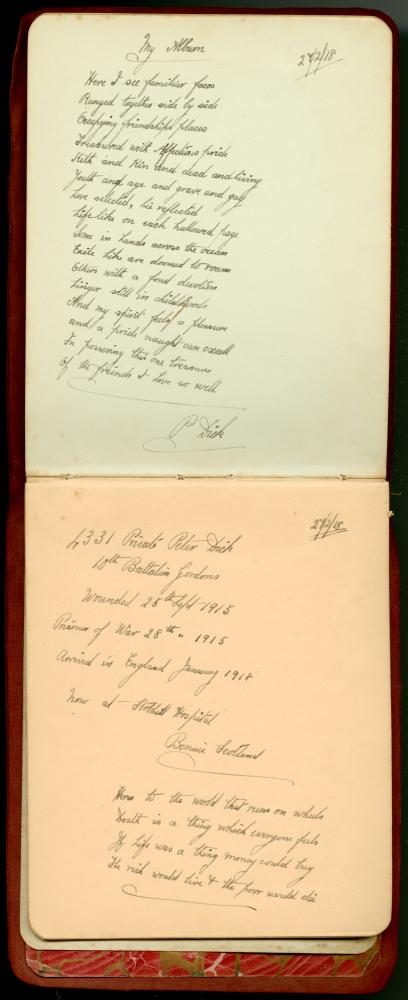 My Album
27/2/18
Here I see familiar faces
Ranged together side by side
Occupying friendships places
Treasured with Affections pride
Kith and Kin and dead and living
Youth and age and grave and gay
Love selected, lie reflected
Life like on each hallowed page
Some in lands across the ocean
Exile like are doomed to roam
Others with a fond devotion
Linger still in childhoods
And my spirit feels a pleasure
and a pride naught can excell
In possessing this one treasure
Of the friends I love so well
P Dick
27/2/18
4331 Private Peter Dick
10th Battalion Gordons
Wounded 25th Sept 1915
Prisoner of War 28th " 1915
Arrived in England January 1918
Now at Hospital
Scotland
Heres to the world that runs on wheels
Death is a thing which everyone feels
If life was a thing money could buy
The rich would live & the poor would die